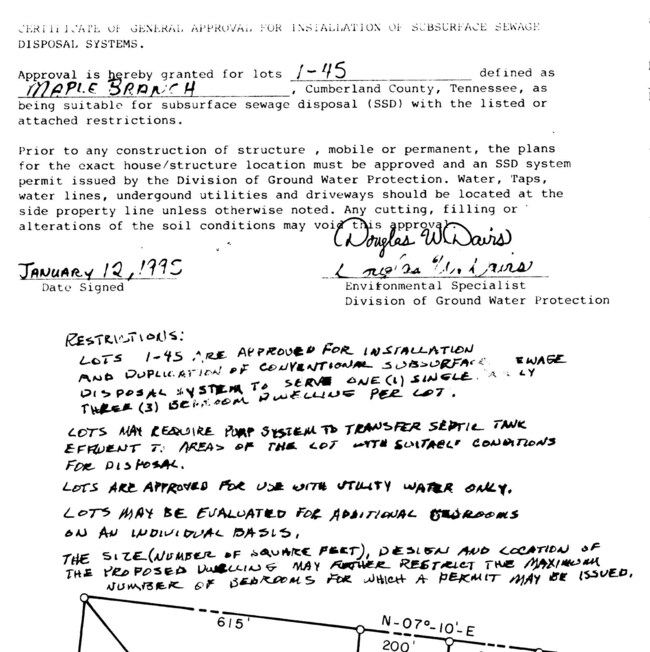 CERTIFICATE OF GENERAL APPROVAL FOR INSTALLATION OF SUBSURFACE SEWAGE
DISPOSAL SYSTEMS.
Approval is hereby granted for lots 1-45 defined as
MAPLE BRANCH, Cumberland County, Tennessee, as
being suitable for subsurface sewage disposal (SSD) with the listed or
attached restrictions.
Prior to any construction of structure , mobile or permanent, the plans
for the exact house/structure location must be approved and an SSD system
permit issued by the Division of Ground Water Protection. Water, Taps,
water lines, undergound utilities and driveways should be located at the
side property line unless otherwise noted. Any cutting, filling or
alterations of the soil conditions may void this approval.
Douglas W Davis
JANUARY 12, 1995
Date Signed
Environmental Specialist
Division of Ground Water Protection
RESTRICTIONS:
LOTS 1-45 ARE APPROVED FOR INSTALLATION
AND DUPLICATION OF CONVENTIONAL SUBSURFACE EWAGE
DISPOSAL SYSTEM TO SERVE ONE (1) SINGLE
THREE (3) BEDROOM DWELLING PER LOT.
LOTS MAY REQUIRE PUMP SYSTEM TO TRANSFER SEPTIC TANK
EFFLUENT TO AREAS OF THE LOT WITH SUITABLE CONDITIONS
FOR DISPOSAL.
LOTS ARE APPROVED FOR USE WITH UTILITY WATER ONLY.
LOTS MAY BE EVALUATED FOR ADDITIONAL BEDROOMS
ON AN INDIVIDUAL BASIS.
THE SIZE (NUMBER OF SQUARE FEET), DESIGN AND LOCATION OF
THE PROPOSED DWELLING MAY FURTHER RESTRICT THE MAXIMUM
NUMBER OF BEDROOMS FOR WHICH A PERMIT MAY BE ISSUED.
615'
N-07°-10'-E
200'